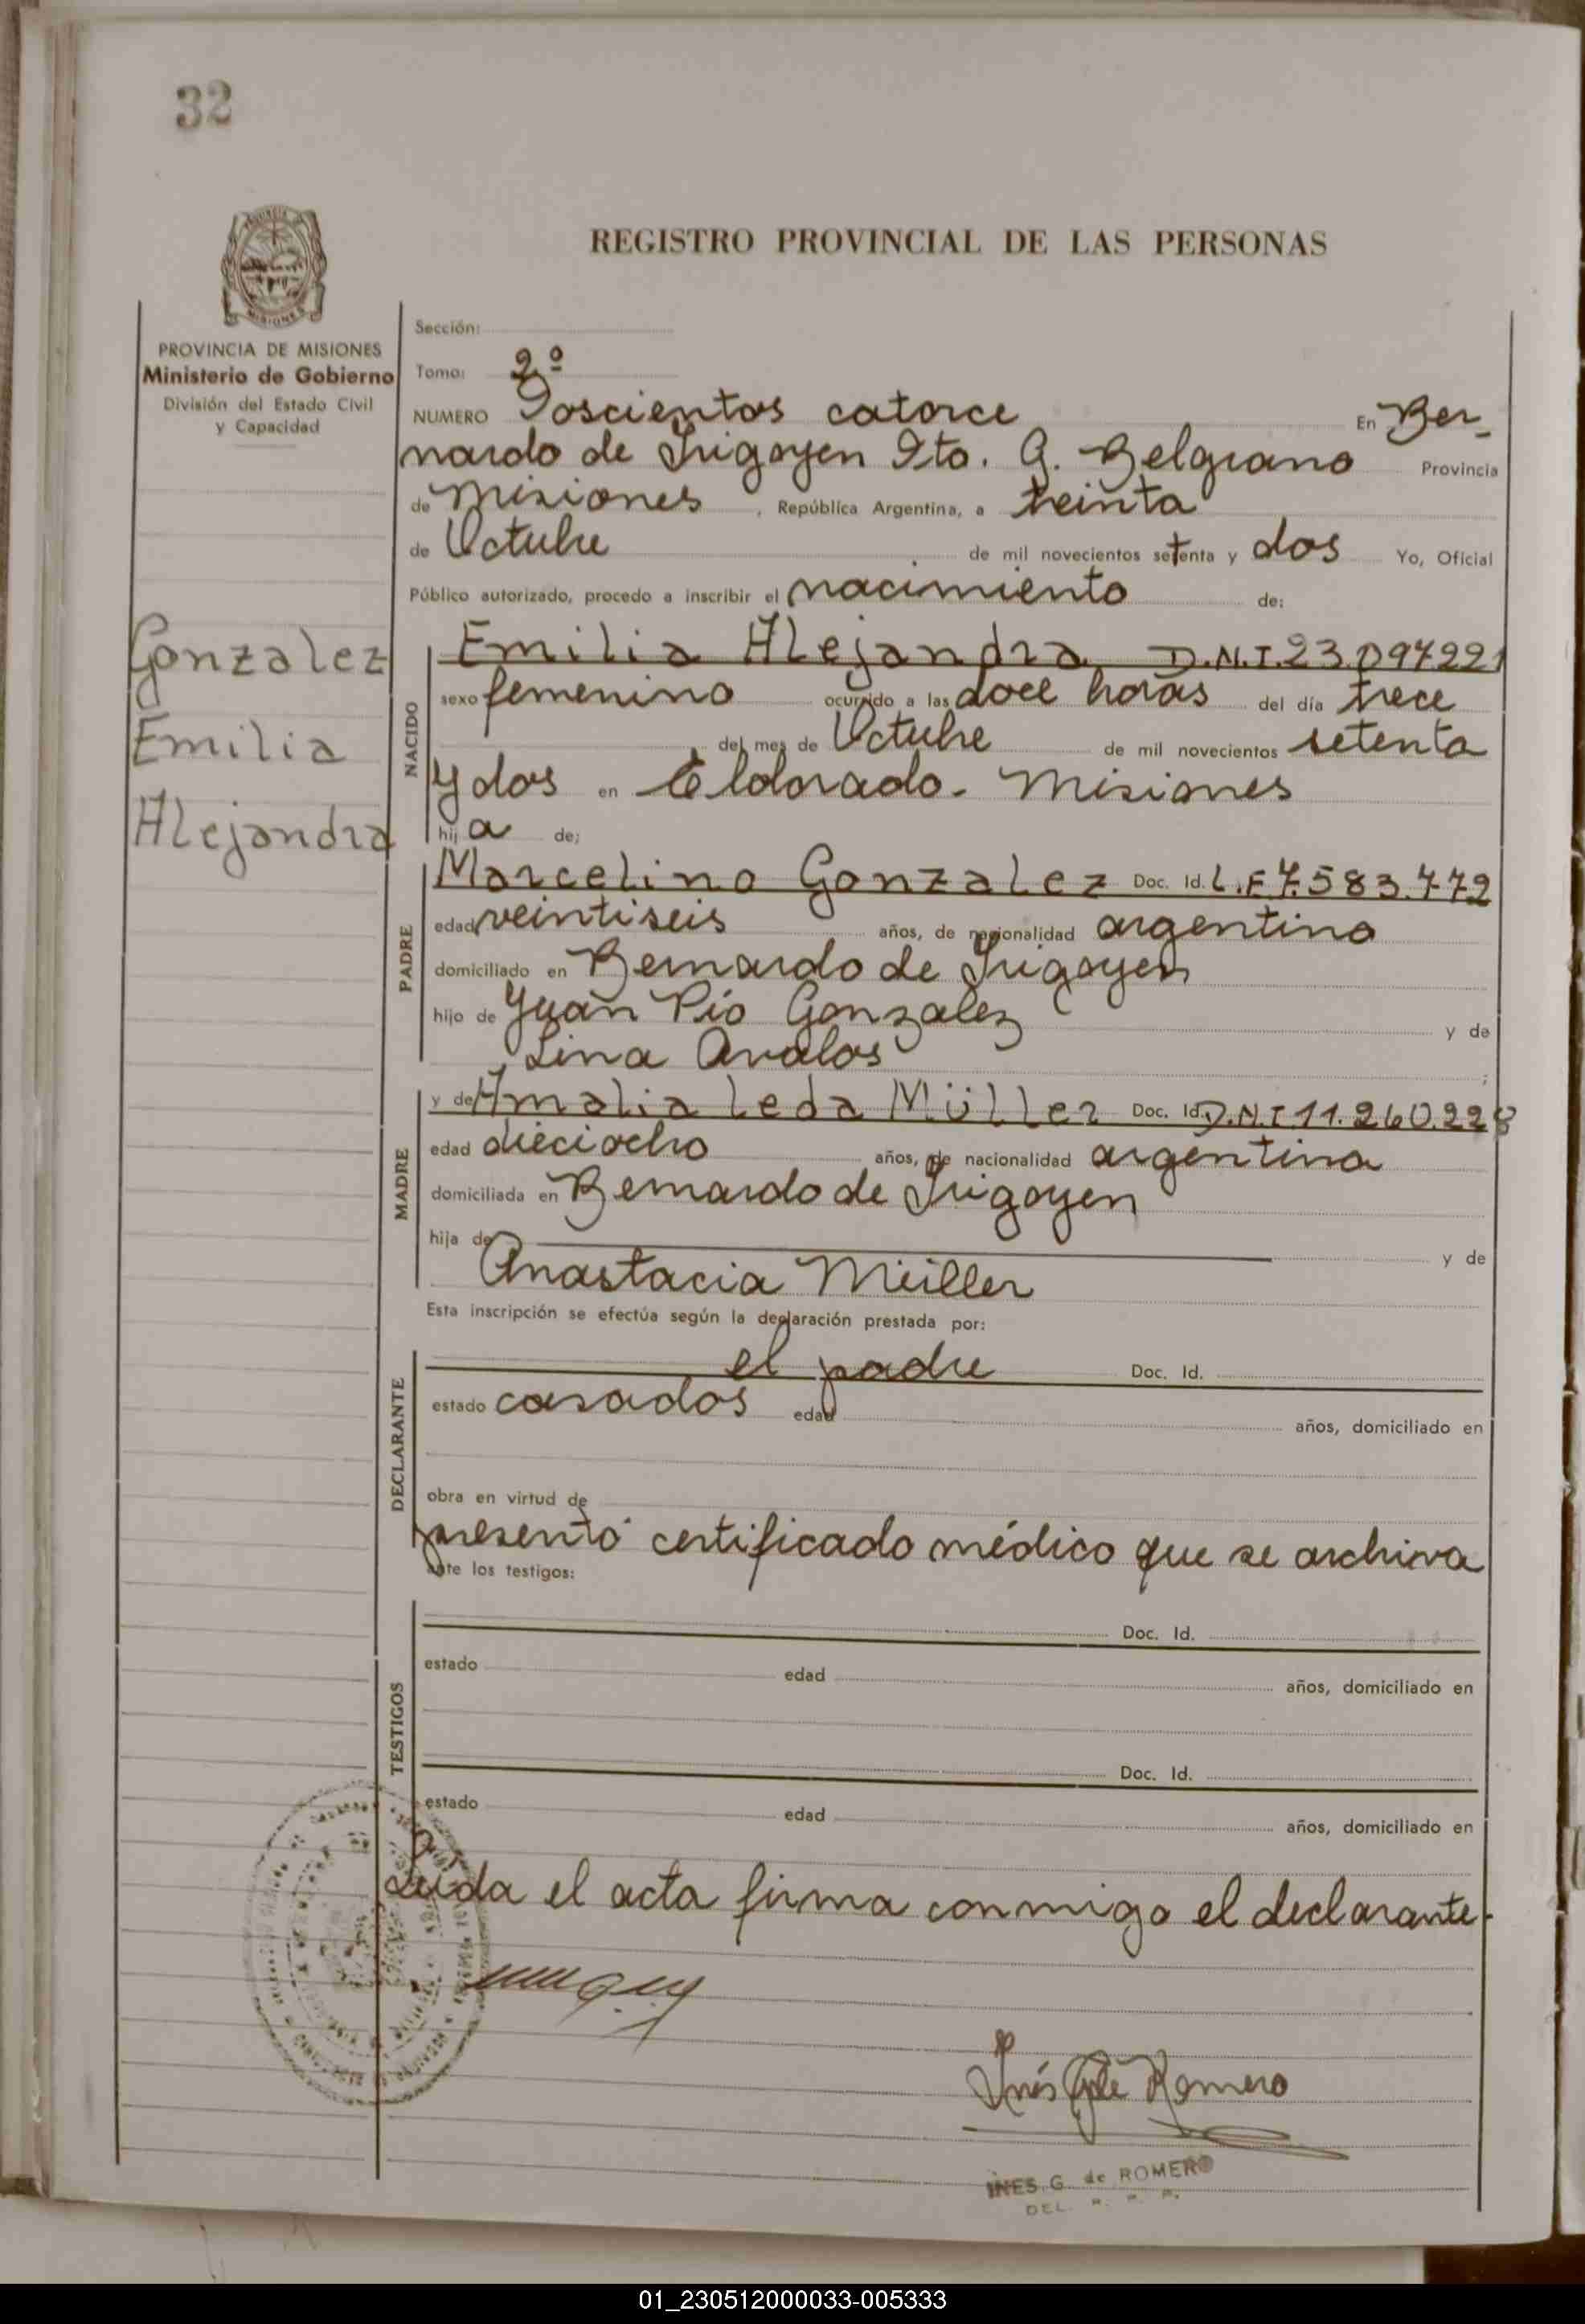 32
REGISTRO PROVINCIAL DE LAS PERSONAS
PROVINCIA DE MISIONES
Ministerio de Gobierno
División del Estado Civil
y Capacidad
Gonzalez
Emilia
Alejandra
Sección:
Tomo: 2º
NUMERO Doscientos catorce En Ber-
nardo de Irigoyen Dto. G. Belgrano Provincia
de Misiones, República Argentina, a treinta
de Octubre de mil novecientos setenta y dos Yo, Oficial
Público autorizado, procedo a inscribir el nacimiento de:
NACIDO
Emilia Alejandra D.N.I 23.097221
sexo femenino ocurrido a las doce horas del día trece
del mes de Octubre de mil novecientos setenta
y dos en Eldorado. Misiones
hija de;
PADRE
Marcelino Gonzalez Doc. Id. L.E 7.583.772
edad veintiseis años, de nacionalidad argentino
domiciliado en Bernardo de Irigoyen
hijo de Juan Pío Gonzalez y de
Lina Avalos ;
MADRE
y de Amalia Leda Müller Doc. Id. D.N.I 11.260.228
edad dieciocho años, de nacionalidad argentina
domiciliada en Bernardo de Irigoyen
hija de y de
Anastacia Müller
Esta inscripción se efectúa según la declaración prestada por:
DECLARANTE
el padre Doc. Id.
estado casados edad años, domiciliado en
obra en virtud de
presentó certificado médico que se archiva
ante los testigos:
TESTIGOS
Doc. Id.
estado edad años, domiciliado en
Doc. Id.
estado edad años, domiciliado en
Leída el acta firma conmigo el declarante.
Inés G. de Romero
INES. G. de ROMERO
DEL. R. P. P.
01_230512000033-005333